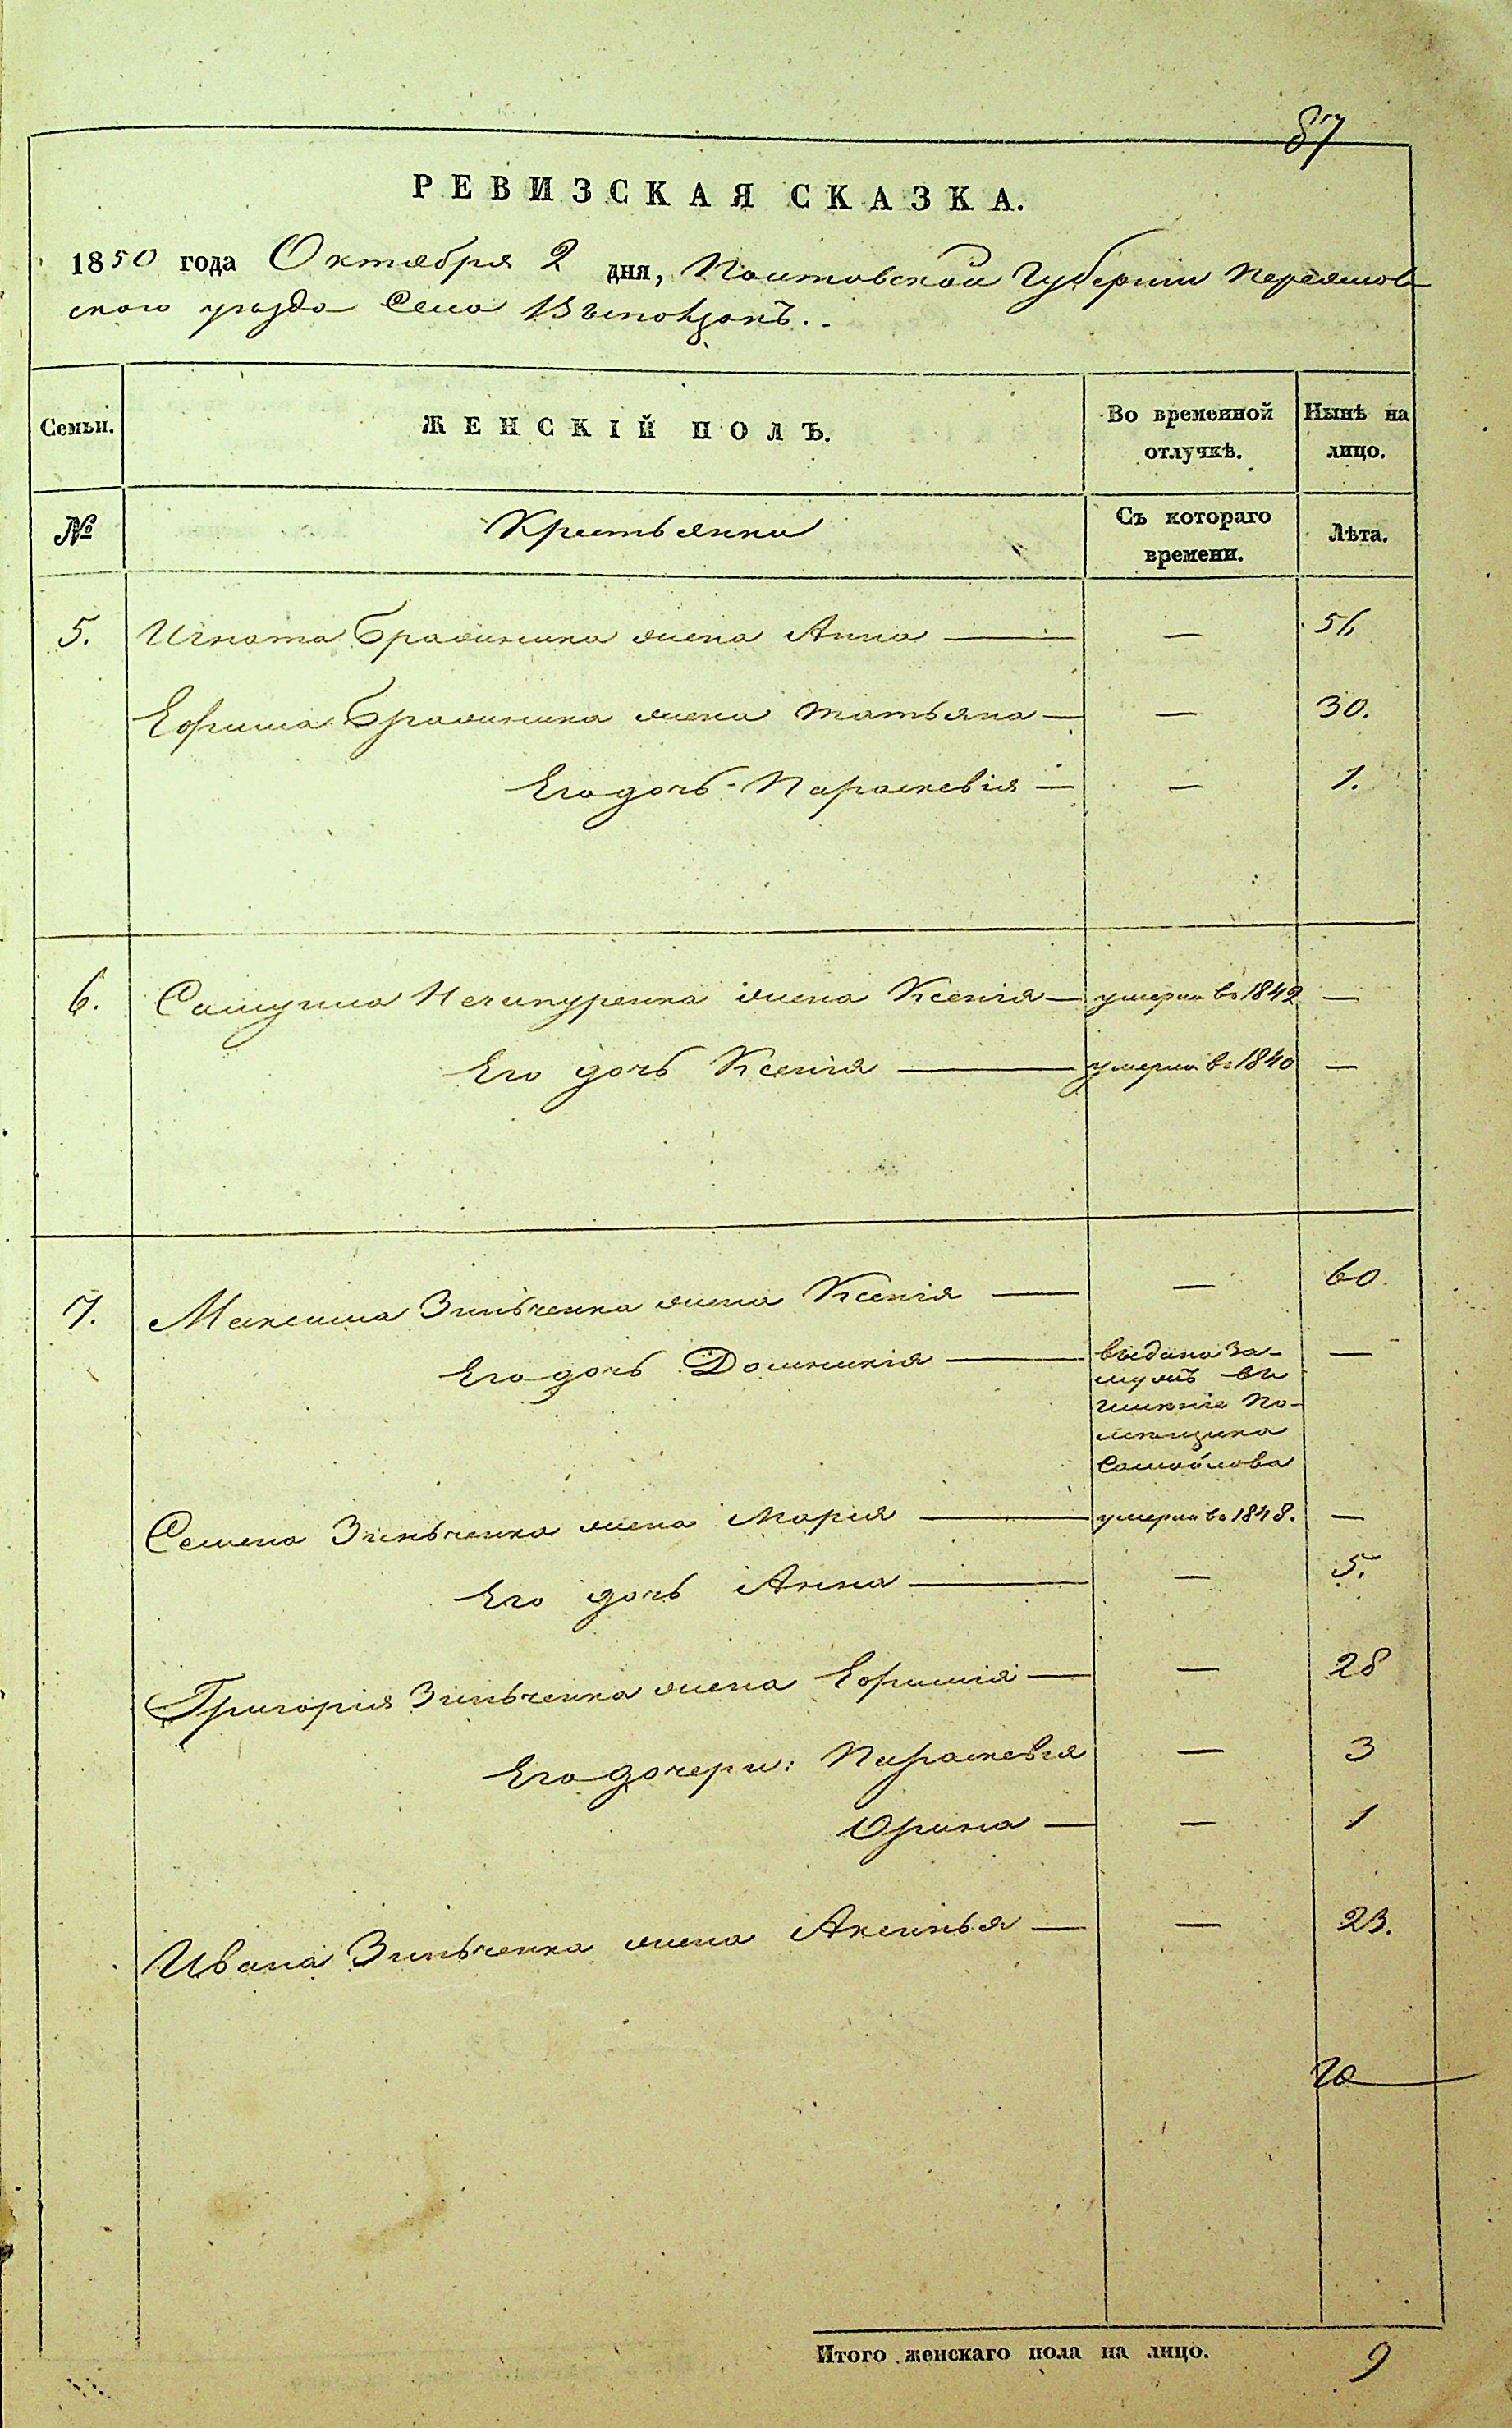 87
РЕВИЗСКАЯ СКАЗКА.
1850 года Октября 2 дня, Полтавской Губерніи Переяслов
ского уезда Села Выповзокъ.
Семьи. ЖЕНСКІЙ ПОЛЪ. Во временной отлучкѣ. Нынѣ на лицо.
№ Крестьянки Съ котораго времени. Лѣта.
5. Игната жена Анна — — 56
Ефима жена Татьяна — — 30.
Его дочь Параскевія — — 1.
6. Самуила Нечипуренка жена Ксенія — умерла въ 1842 —
Его дочь Ксенія — умерла въ 1840 —
7. Максима Зинченка жена Ксенія — — 60.
Его дочь Домникія — выдана за- —
мужъ въ
имѣніе По-
мещика
Самойлова
Семена Зинченка жена Марія — умерла въ 1848. —
Его дочь Анна — — 5.
Григорія Зинченка жена Ефимія — — 28
Его дочери: Параскевія — 3
Орина — — 1
Ивана Зинченка жена Аксинья — — 23.
Итого женскаго пола на лицо. 9